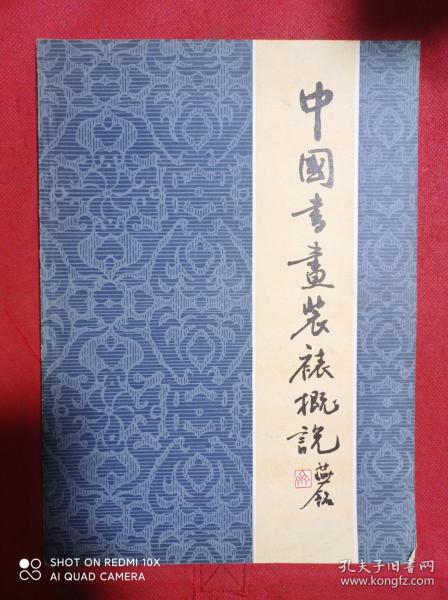 中國書畫裝裱概説
燕銘
SHOT ON REDMI 10X
AI QUAD CAMERA
孔夫子旧书网
www.kongfz.com